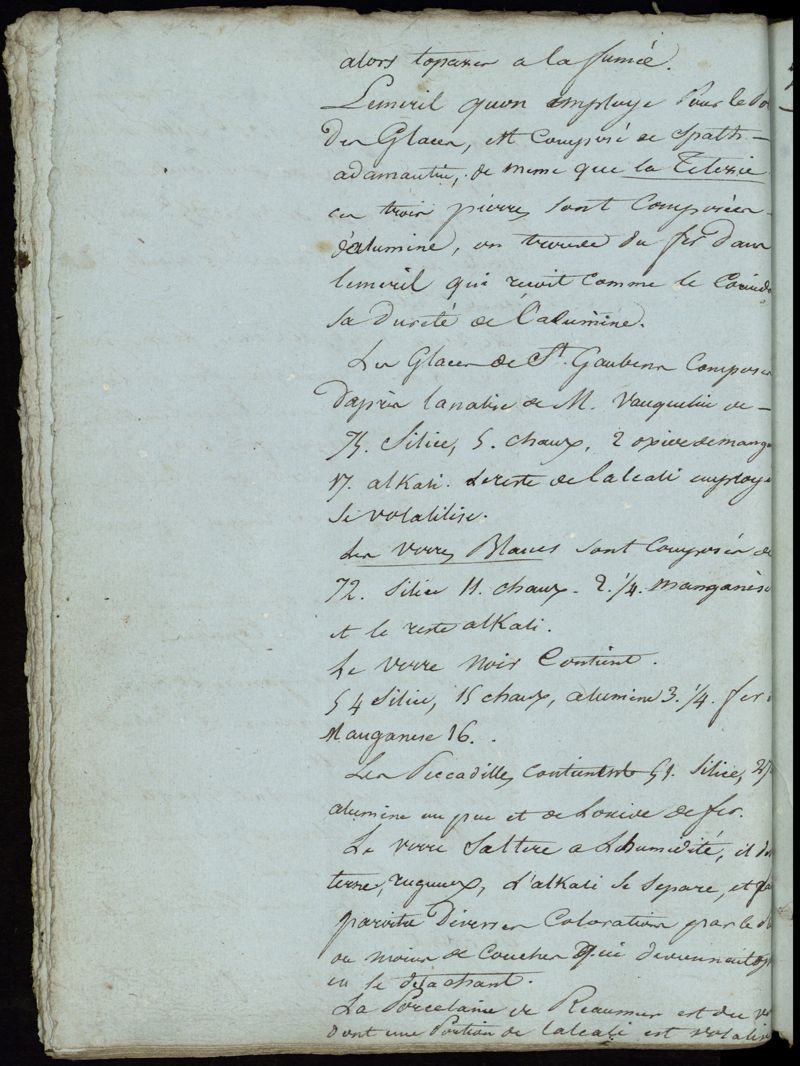 alors topazes a la fumée.
Lemeril qu'on employe Pour le Po
des Glaces, est Composé de spath-
adamantin, de meme que la Telesie
ces trois pierres sont Composées
d'alumine, on trouve du fer dans
lemeril qui recoit comme le Corind
sa dureté de l'alumine.
Les Glaces de St. Gaubens Composées
d'après lanalise de M. Vauquelin de-
75. Silice, 5. chaux, 2 oxide de mang
17. alkali. Le reste de lalcali employé
se volatilise.
Les Verres Blancs sont composés de
72. Silice 11. chaux. 2.1/4. manganèse
et le reste alkali.
Le verre Noir Contient.
54 Silice, 15 chaux, alumine 3.1/4. fer
Manganese 16.
Les Peccadilles contiennent 51. Silice,
alumine un peu et de Loxide de fer.
Le verre saltere a Lhumidité, il
terne, rugueux, L'alkali se separe, et
paroitre Diverses Coloration par le
ou moins de couches qui
en se détachant.
La Porcelaine de Reaumur est du
dont une Portion de lalcali est volatilis